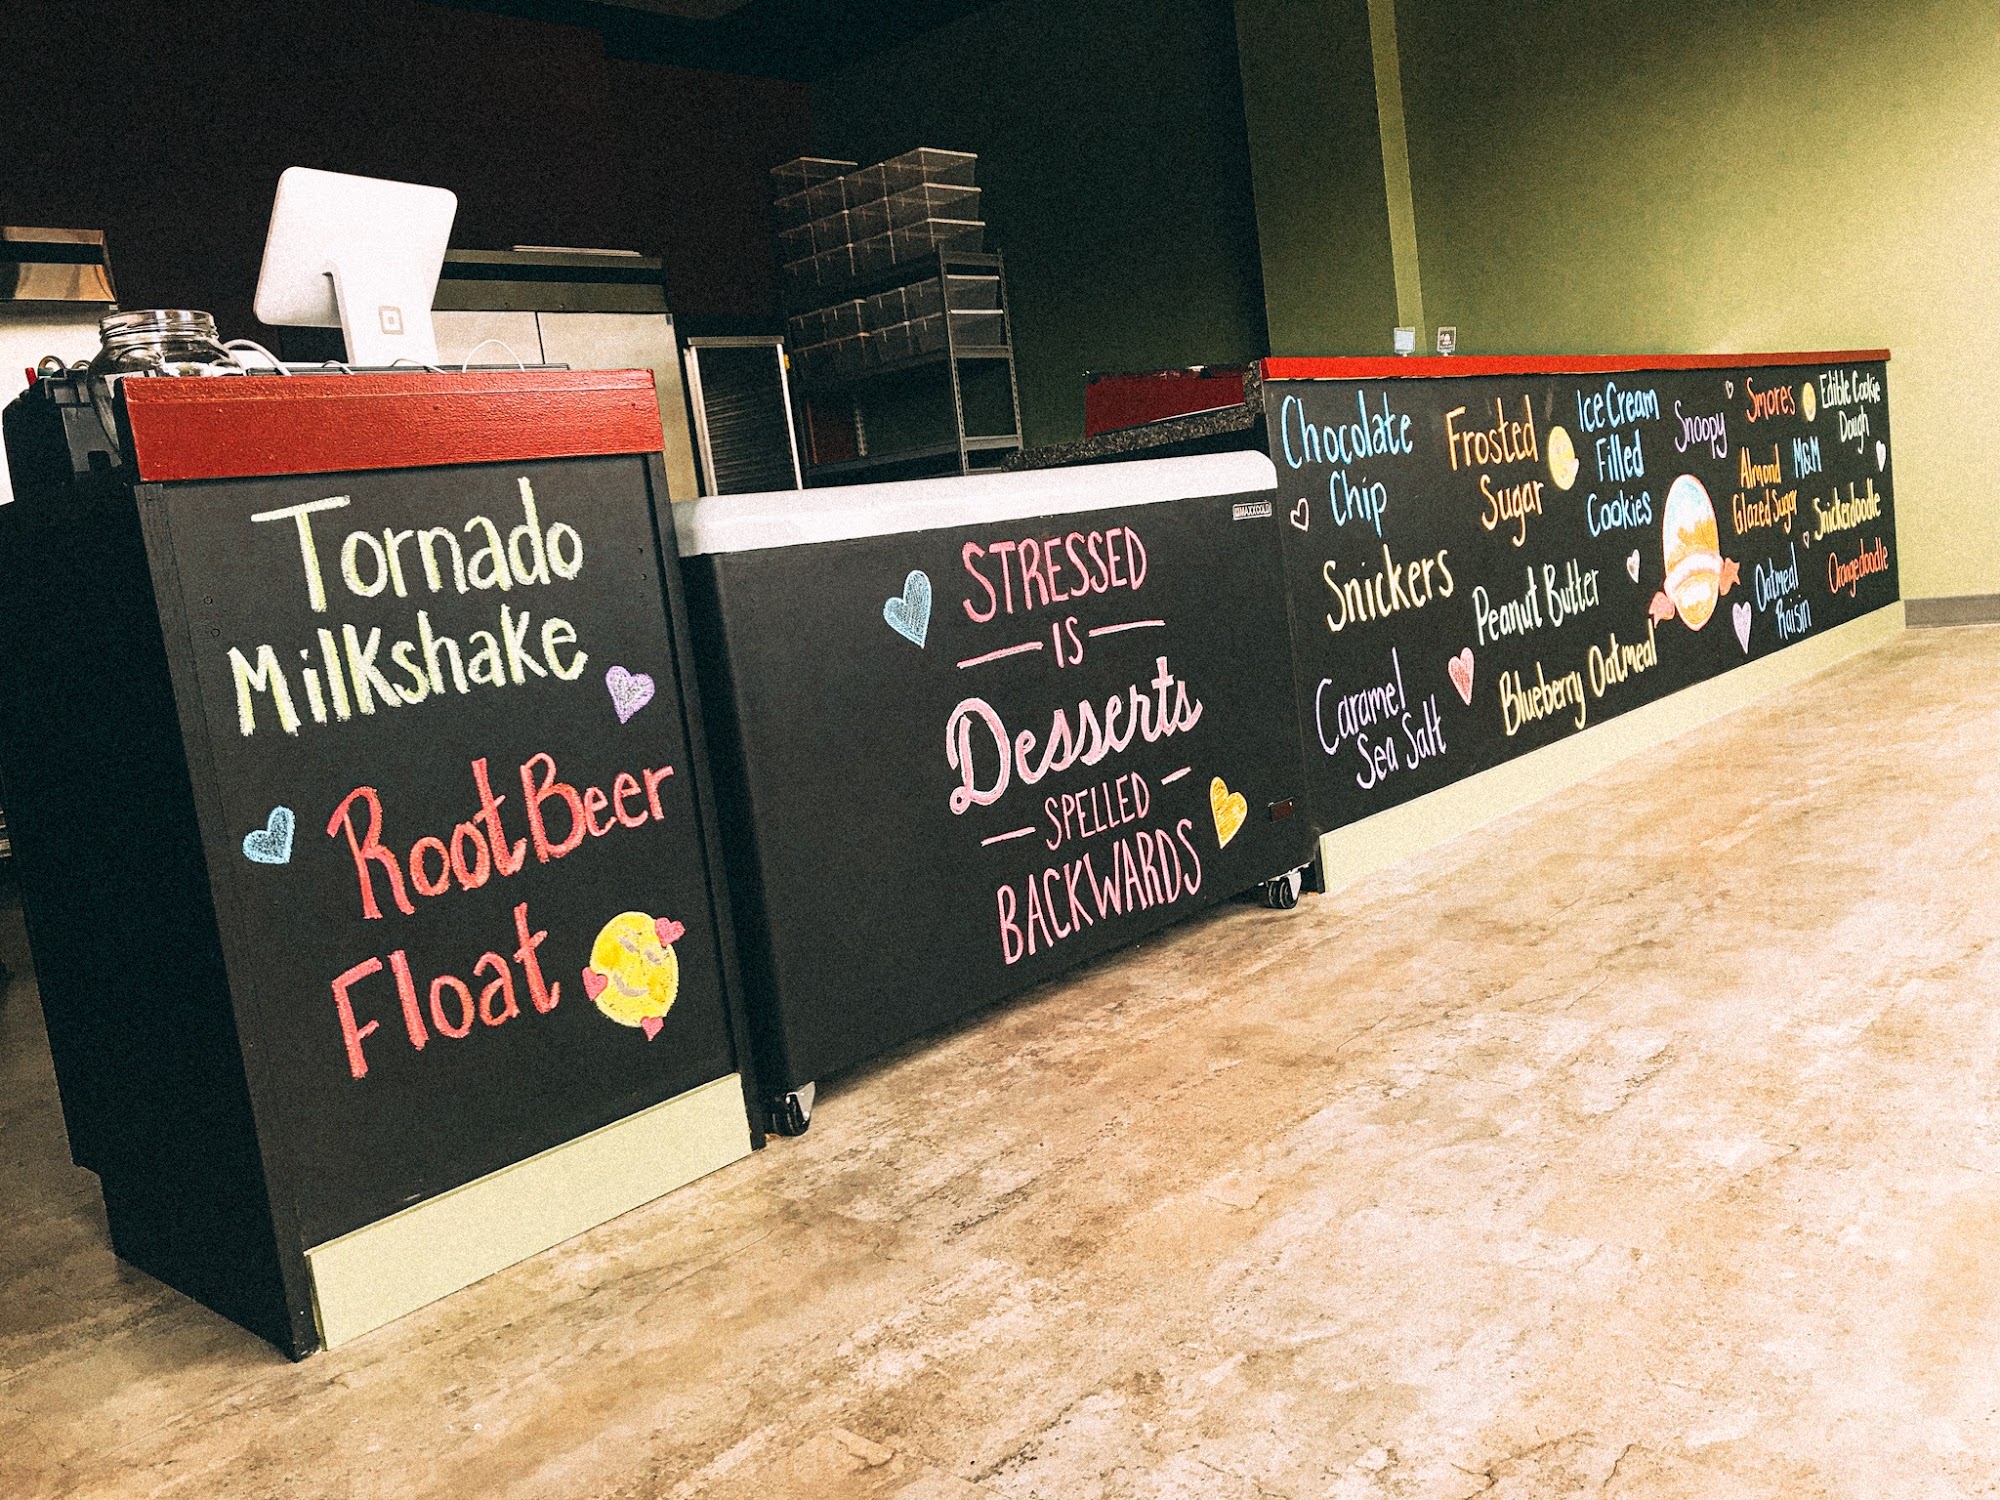 Tornado
Milkshake
Root Beer
Float
STRESSED
IS
Desserts
SPELLED
BACKWARDS
MAXXCOLD
Chocolate
Chip
Snickers
Caramel
Sea Salt
Frosted
Sugar
Peanut Butter
Blueberry Oatmeal
Ice Cream
Filled
Cookies
Snoopy
Smores
Almond
Glazed Sugar
Oatmeal
Raisin
Edible Cookie
Dough
M&M
Snickerdoodle
Orangedoodle